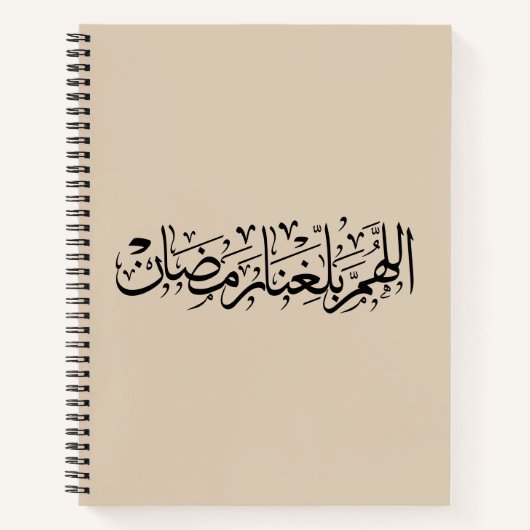 اللَّهُمَّ بَلِّغْنَا رَمَضَانَ